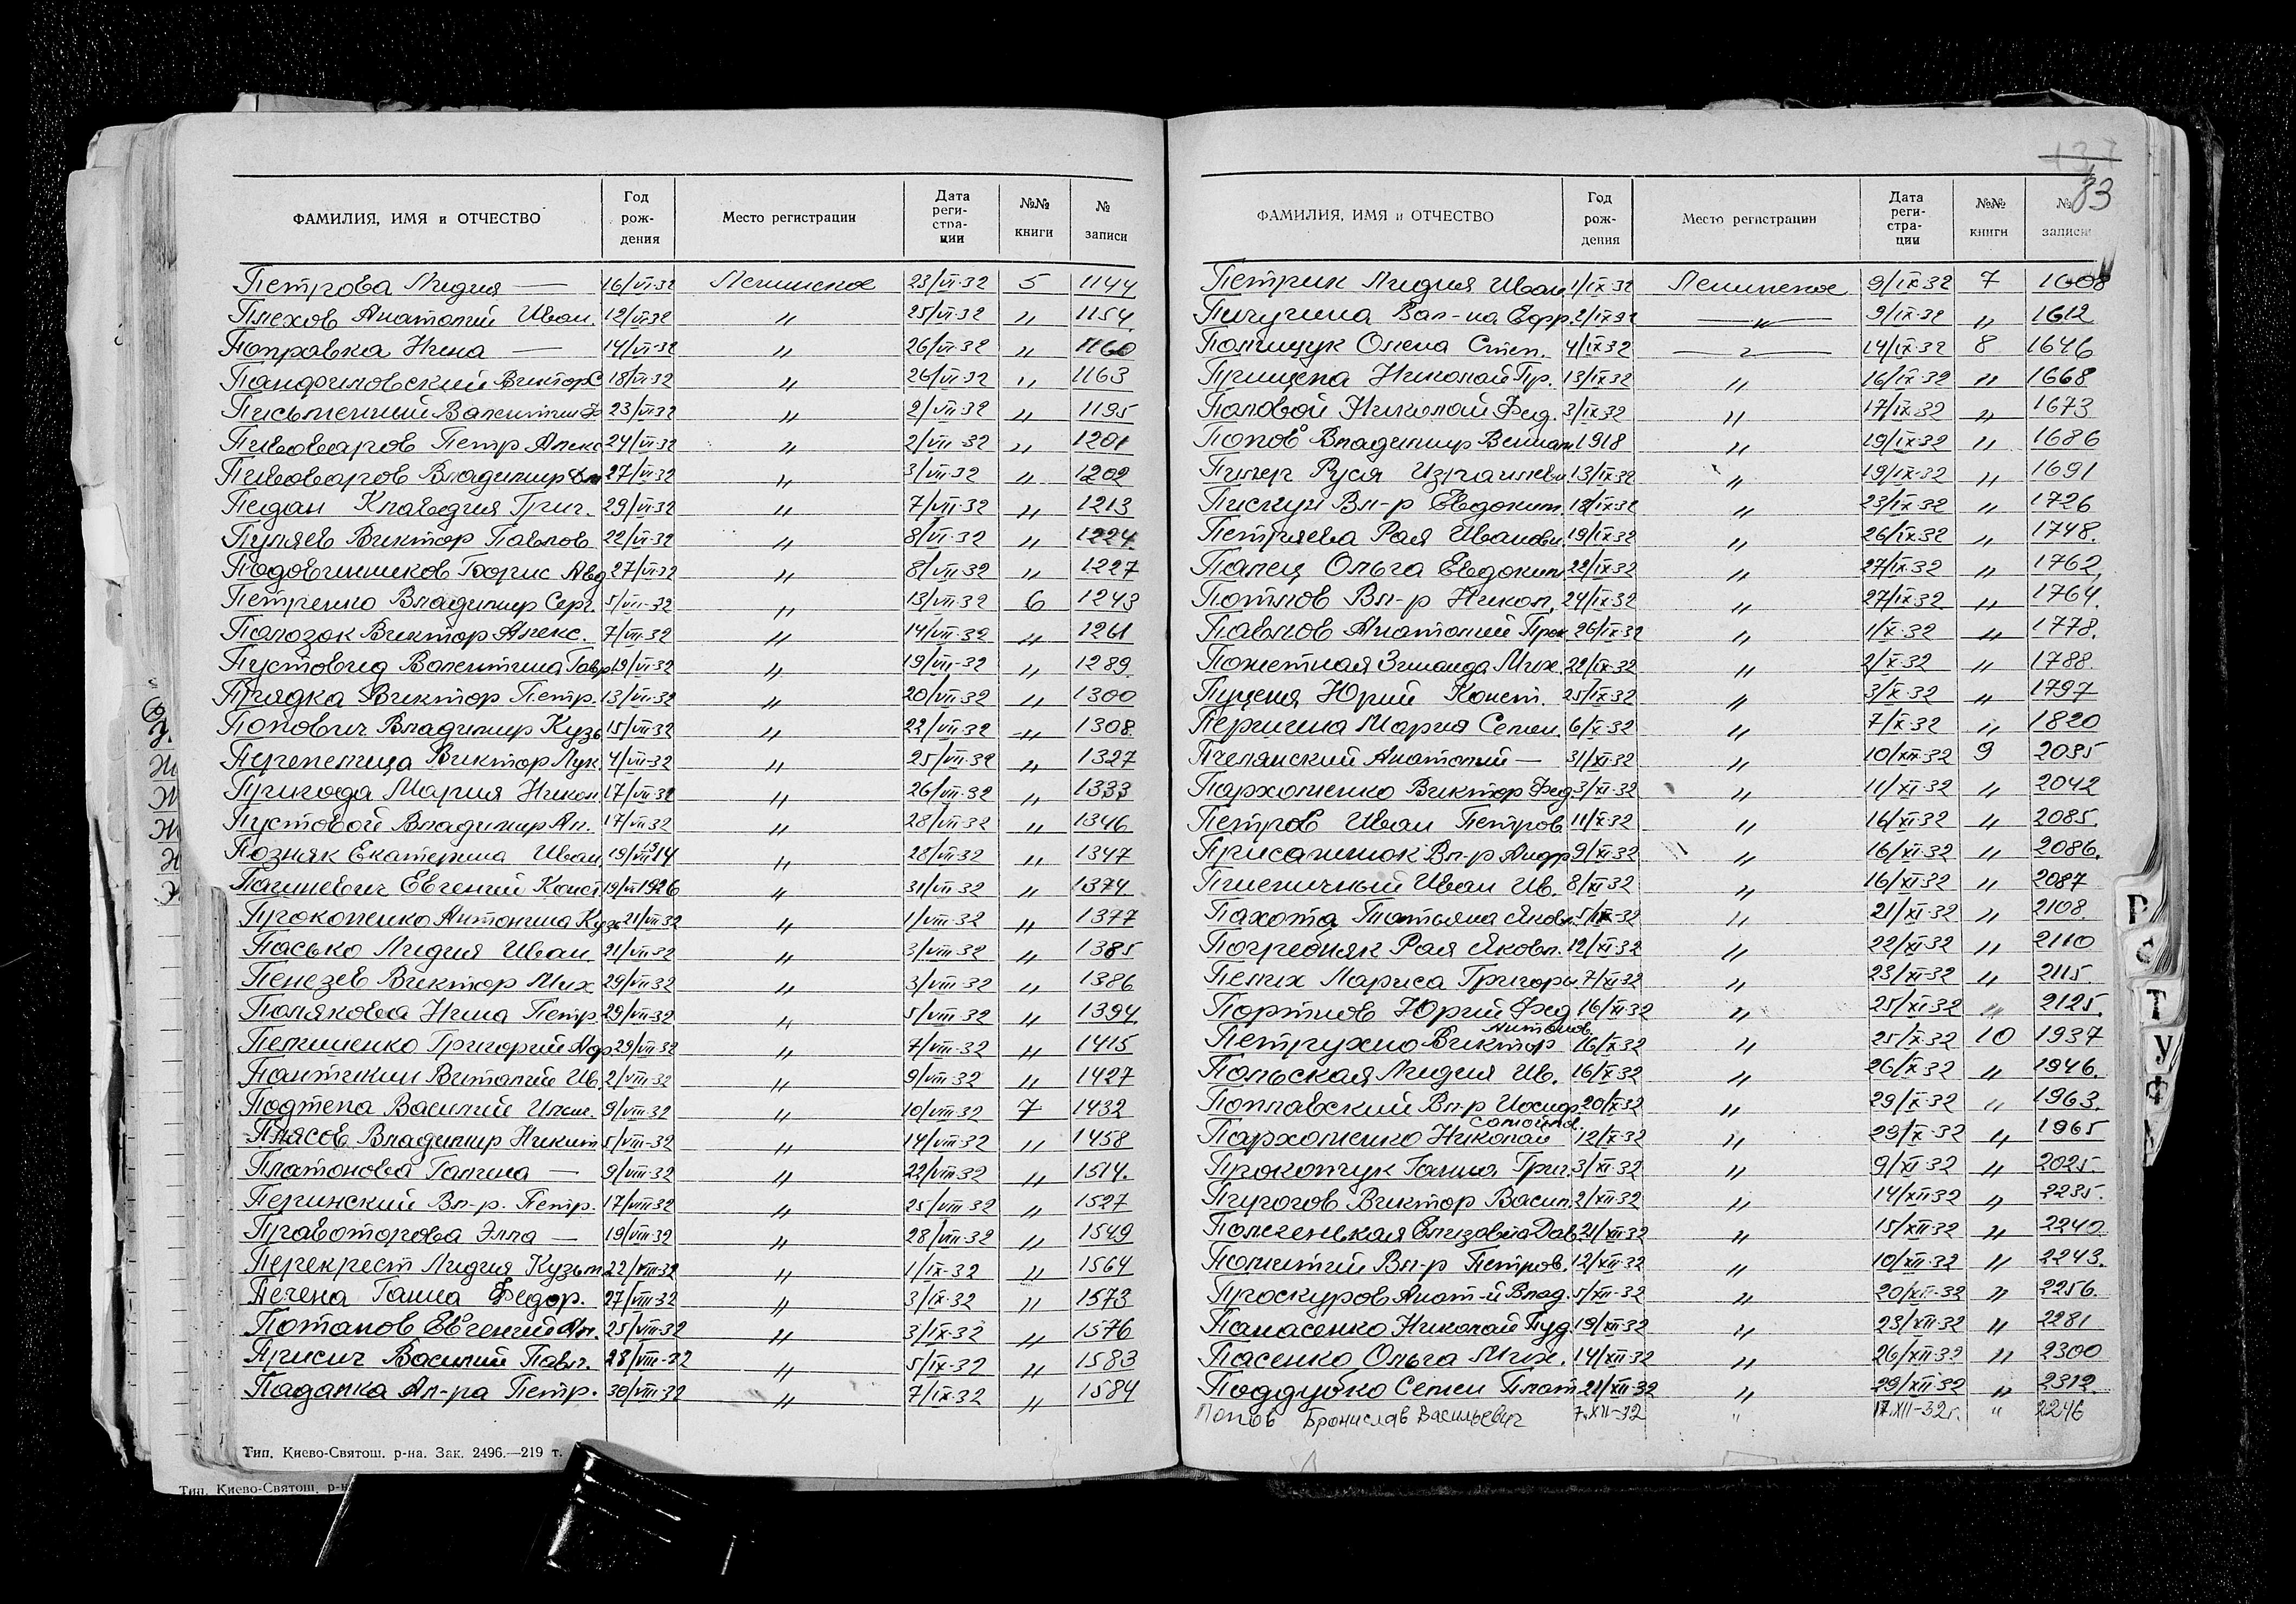 ФАМИЛИЯ, ИМЯ и ОТЧЕСТВО Год рождения Место регистрации Дата регистрации №№ книги № записи
Петрова Лидия — 16/VI-32 Ленинское 23/VI-32 5 1144
Плехов Анатолий Иван. 12/VI32 〃 25/VI-32 〃 1154
Поправка Нина — 14/VI-32 〃 26/VI-32 〃 1160
Панфиловский Виктор С 18/VI-32 〃 26/VI-32 〃 1163
Письменный Валентин 23/VI32 〃 2/VII-32 〃 1195
Пивоваров Петр Алекс 24/VI-32 〃 2/VII-32 〃 1201
Пивоваров Владимир 27/VI-32 〃 3/VII-32 〃 1202
Педан Клавдия Григ. 29/VI-32 〃 7/VII-32 〃 1213
Пуляев Виктор Павлов 22/VI-32 〃 8/VI-32 〃 1224
Подовинников Борис Авд 27/VI32 〃 8/VII-32 〃 1227
Петренко Владимир Серг. 5/VII-32 〃 13/VII-32 6 1243
Палозок Виктор Алекс. 7/VII-32 〃 14/VII-32 〃 1261
Пустовид Валентина Гавр 19/VI-32 〃 19/VII-32 〃 1289
Прядка Виктор Петр. 13/VII-32 〃 20/VII-32 〃 1300
Попович Владимир Кузь 15/VII32 〃 22/VII-32 〃 1308
Перепелица Виктор Лук. 4/VII-32 〃 25/VII-32 〃 1327
Пригода Мария Никол. 17/VII-32 〃 26/VII-32 〃 1333
Пустовой Владимир Ал. 17/VII32 〃 28/VII-32 〃 1346
Позняк Екатерина Иван 〃 28/VII-32 〃 1347
Пачиневич Евгений Конст 19/VI1926 〃 31/VII-32 〃 1374
Прокопенко Антонина Куз 21/VII-32 〃 1/VIII-32 〃 1377
Пасько Лидия Иван. 21/VII-32 〃 3/VIII-32 〃 1385
Пенезев Виктор Мих 29/VII-32 〃 3/VIII-32 〃 1386
Полякова Нина Петр. 29/VII-32 〃 5/VIII-32 〃 1394
Пелипенко Григорий 29/VII-32 〃 7/VIII-32 〃 1415
Пантикин Виталий Ив. 2/VIII-32 〃 9/VIII-32 〃 1427
Подтепа Василий 9/VIII-32 〃 10/VIII-32 7 1432
Плясов Владимир Никит 5/VIII-32 〃 14/VIII-32 〃 1458
Платонова Галина — 9/VIII-32 〃 22/VIII32 〃 1514.
Перинский Вл-р. Петр. 17/VIII32 〃 25/VIII32 〃 1527
Правоторова Элла — 19/VIII-32 〃 28/VIII-32 〃 1549
Перекрест Лидия Кузьм 22/VIII-32 〃 1/IX-32 〃 1564
Печена Ганна Федор. 27/VIII-32 〃 3/IX-32 〃 1573
Потапов Евгений Ал. 25/VIII-32 〃 3/IX-32 〃 1576
Присич Василий Павл. 28/VIII-32 〃 5/IX-32 〃 1583
Падалка Ал-ра Петр. 30/VIII-32 〃 7/IX-32 〃 1584
Тип. Киево-Святош. р-на. Зак. 2496.—219 т.
Тип. Киево-Святош. р-н
83
ФАМИЛИЯ, ИМЯ и ОТЧЕСТВО Год рождения Место регистрации Дата регистрации №№ книги № записи
Петрик Лидия Иван 1/IX-32 Ленинское 9/IX-32 7 1608
Пичугина Вал-на Ефр. 2/IX-32 〃 9/IX-32 〃 1612
Полищук Олена Степ. 4/IX32 〃 14/IX-32 8 1646
Прищепа Николай Пр. 13/IX32 〃 16/IX-32 〃 1668
Половой Николай Фед. 3/IX32 〃 17/IX-32 〃 1673
Попов Владимир Вениам 1918 〃 19/IX32 〃 1686
Пилер Руся Израилевн. 13/IX32 〃 19/IX-32 〃 1691
Пискун Вл-р Евдоким. 18/IX-32 〃 23/IX-32 〃 1726
Петряева Рая Ивановн. 19/IX-32 〃 26/IX32 〃 1748.
Палец Ольга Евдоким 22/IX-32 〃 27/IX-32 〃 1762
Потлов Вл-р Никол. 24/IX-32 〃 27/IX-32 〃 1764.
Павлов Анатолий Прок. 26/IX-32 〃 1/X-32 〃 1778.
Пожетная Зинаида Мих. 22/IX-32 〃 2/X-32 〃 1788.
Пуценя Юрий Конст. 25/IX-32 〃 3/X-32 〃 1797
Перигина Мария Семен. 6/X-32 〃 7/X-32 〃 1820
Пчелянский Анатолий — 31/XI-32 〃 10/XII-32 9 2035
Пархоменко Виктор Фед 3/XI-32 〃 11/XI-32 〃 2042
Петров Иван Петров 11/X-32 〃 16/XI-32 〃 2085.
Присанинок Вл-р Андр 9/XI-32 〃 16/XI-32 〃 2086.
Пшеничный Иван Ив. 8/XI-32 〃 16/XI-32 〃 2087
Пахота Татьяна Яковл. 〃 21/XI-32 〃 2108
Погребняк Рая Яковл. 12/XI-32 〃 22/XI-32 〃 2110
Пелих Лариса Григорь 7/XI-32 〃 23/XI-32 〃 2115.
Портнов Юрий Фед 16/XI-32 〃 25/XI32 〃 2125.
Антонов.
Петрухно Виктор 16/X-32 〃 25/X-32 10 1937
Польская Лидия Ив. 16/X-32 〃 26/X-32 〃 1946.
Поплавский Вл-р Иосиф. 20/X-32 〃 29/X-32 〃 1963.
Пархоменко Николай 12/X-32 〃 29/X-32 〃 1965
Прокопчук Ганна Григ. 3/XI-32 〃 9/XI-32 〃 2025.
Пурогов Виктор Васил. 2/XII-32 〃 14/XII32 〃 2235.
Полченькая Елизовета Дав. 21/XII-32 〃 15/XII-32 〃 2240
Политий Вл-р Петров. 12/XII-32 〃 10/XII-32 〃 2243.
Проскуров Анат-й Влад. 5/XII-32 〃 20/XII-32 〃 2256.
Панасенко Николай 19/XII-32 〃 23/XII-32 〃 2281
Пасенко Ольга Мих. 14/XII-32 〃 26/XII-32 〃 2300
Поддубко Семен Плат 21/XII-32 〃 29/XII-32 〃 2312.
Попов Бронислав Васильевич 7.XII-32 〃 17.XII-32г. 〃 2246
Р
С
Т
У
Ф